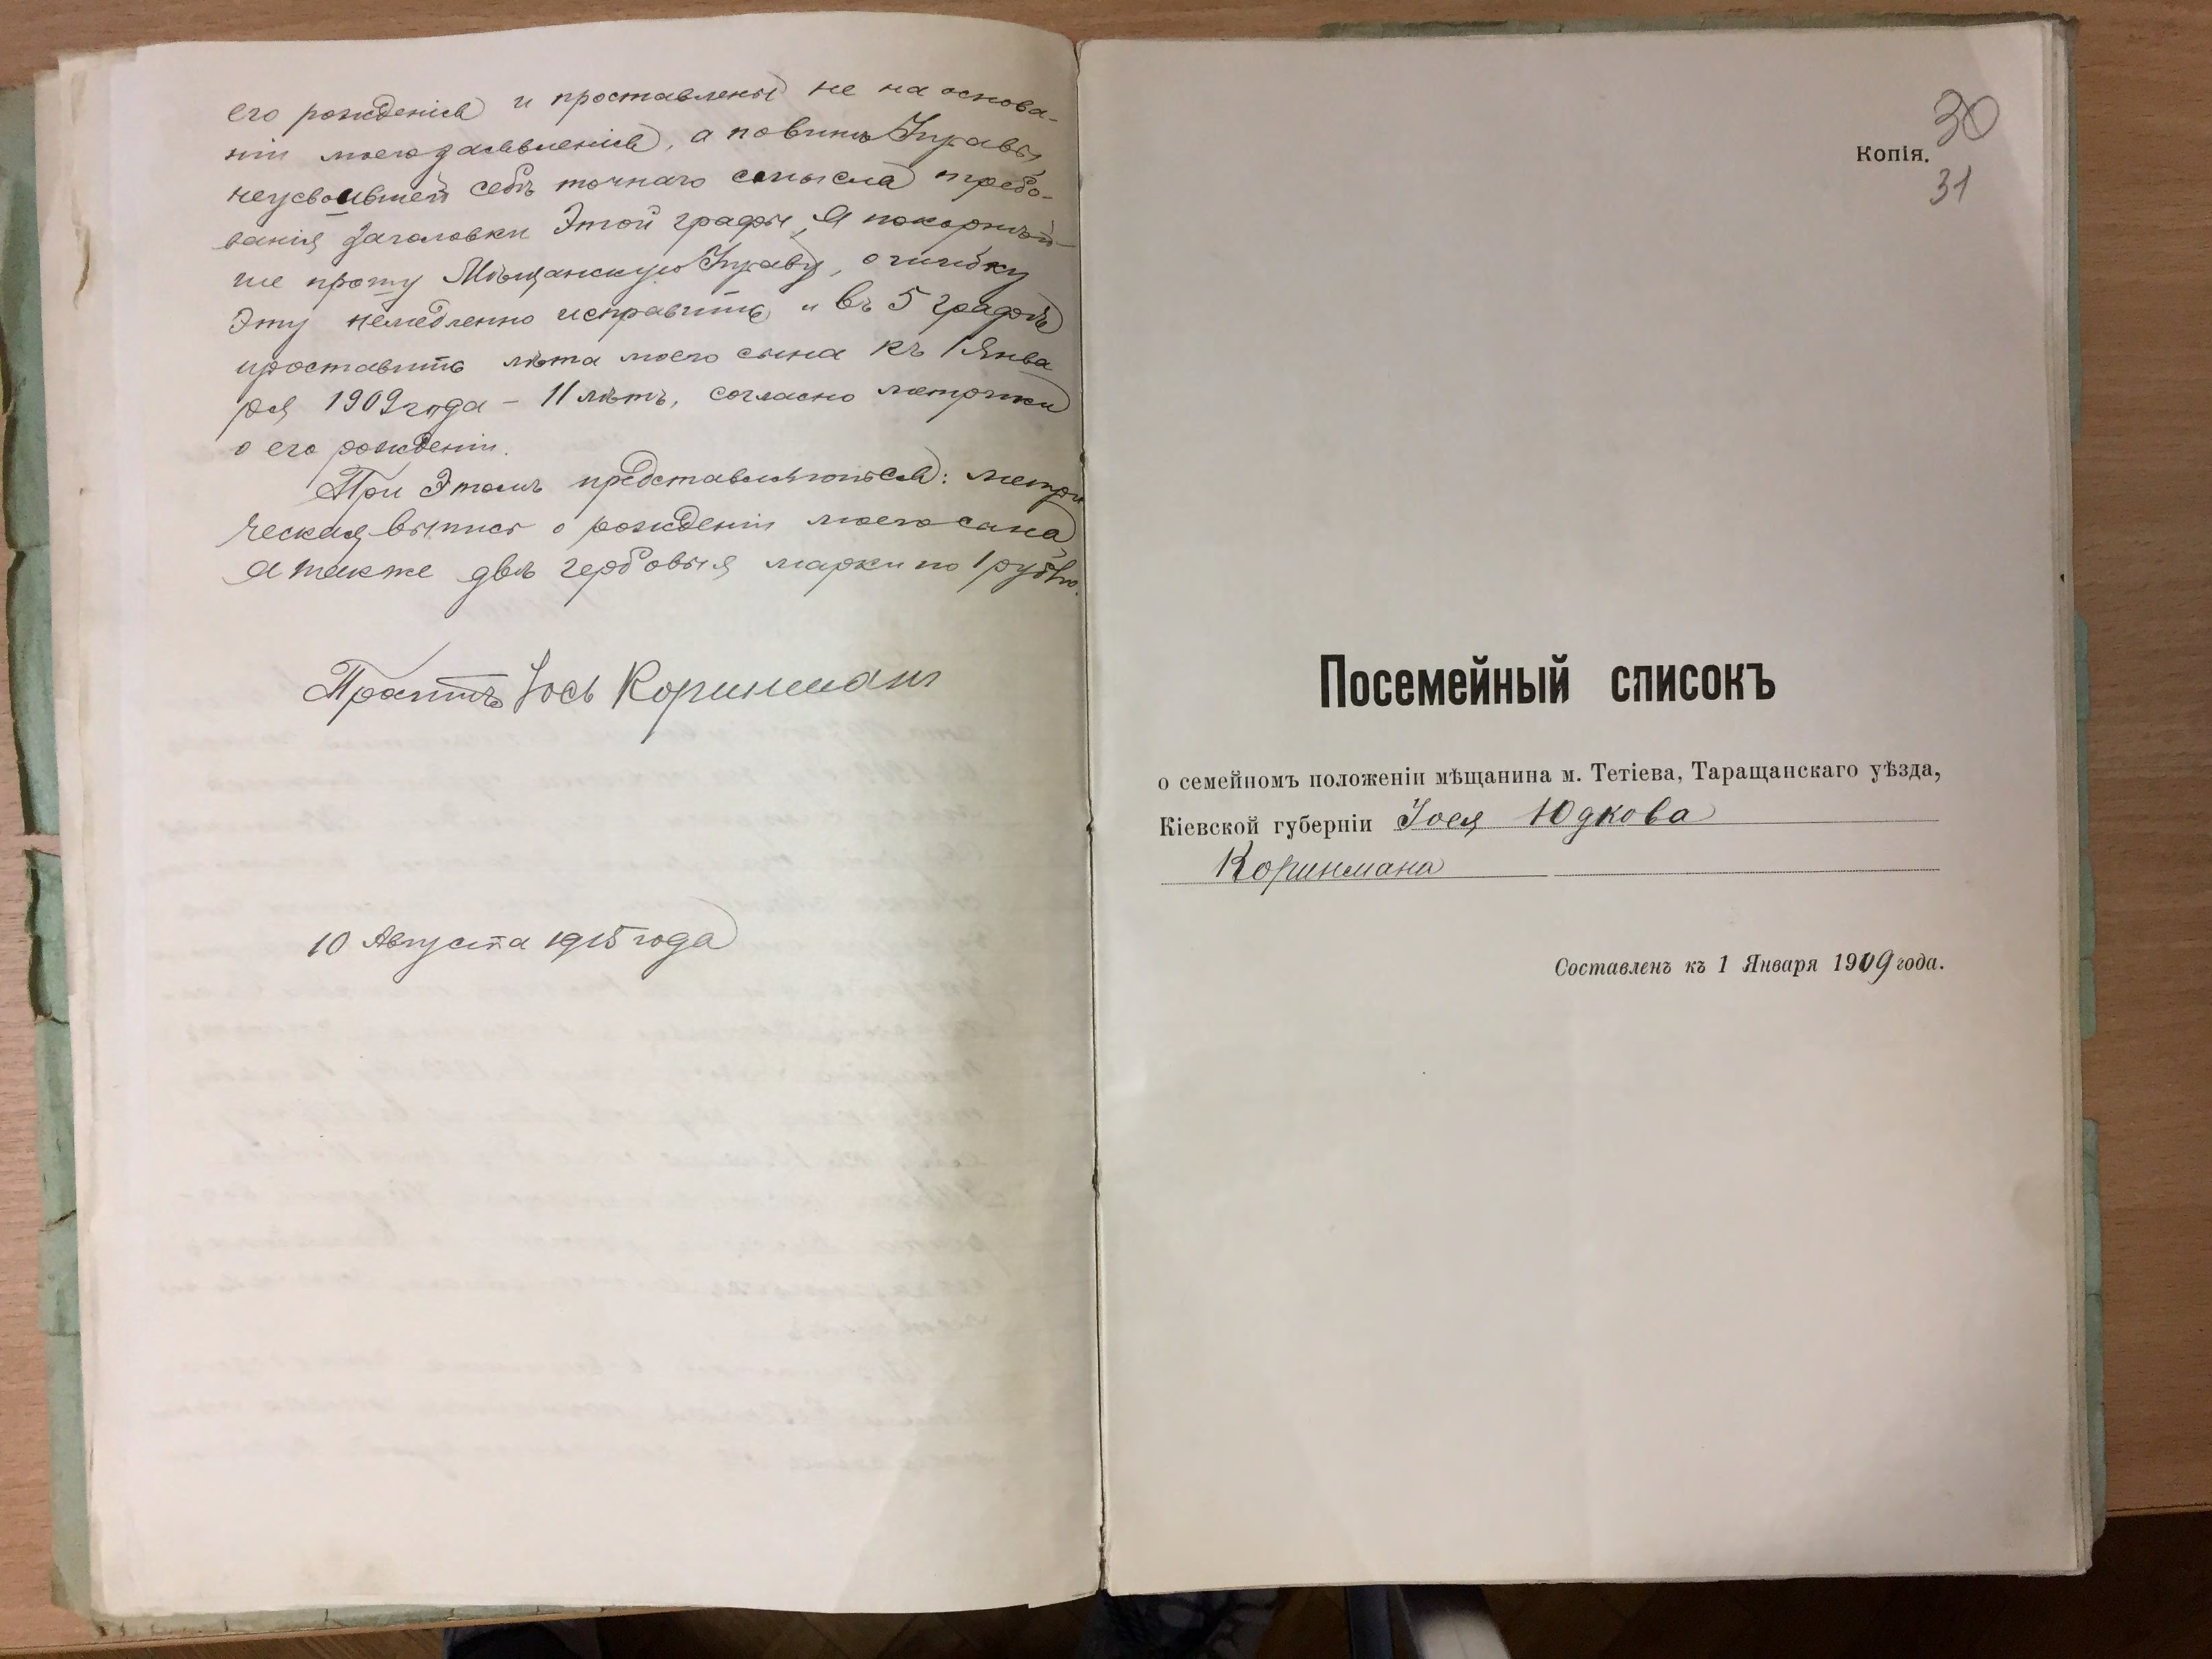 его рожденія и проставлены не на основа-
ніи моего заявленія, а по винѣ Управы,
неусвоившей себѣ точнаго смысла требо-
ванія заголовки этой графы, я покорнѣй-
ше прошу Мѣщанскую Управу, ошибку
эту немедленно исправить и въ 5 графѣ
проставить лѣта моего сына къ 1 Янва
ря 1909 года - 11 лѣтъ, согласно метрики
о его рожденіи.
При этомъ представляются: метри
ческая выпись о рожденіи моего сына,
а также двѣ гербовыя марки по 1 рублю.
Іось Коринман
10 Августа 1915 года
30
Копія.
31
Посемейный списокъ
о семейномъ положеніи мѣщанина м. Тетіева, Таращанскаго уѣзда,
Кіевской губерніи Іося Юдкова
Коринмана
Составленъ къ 1 Января 1909 года.